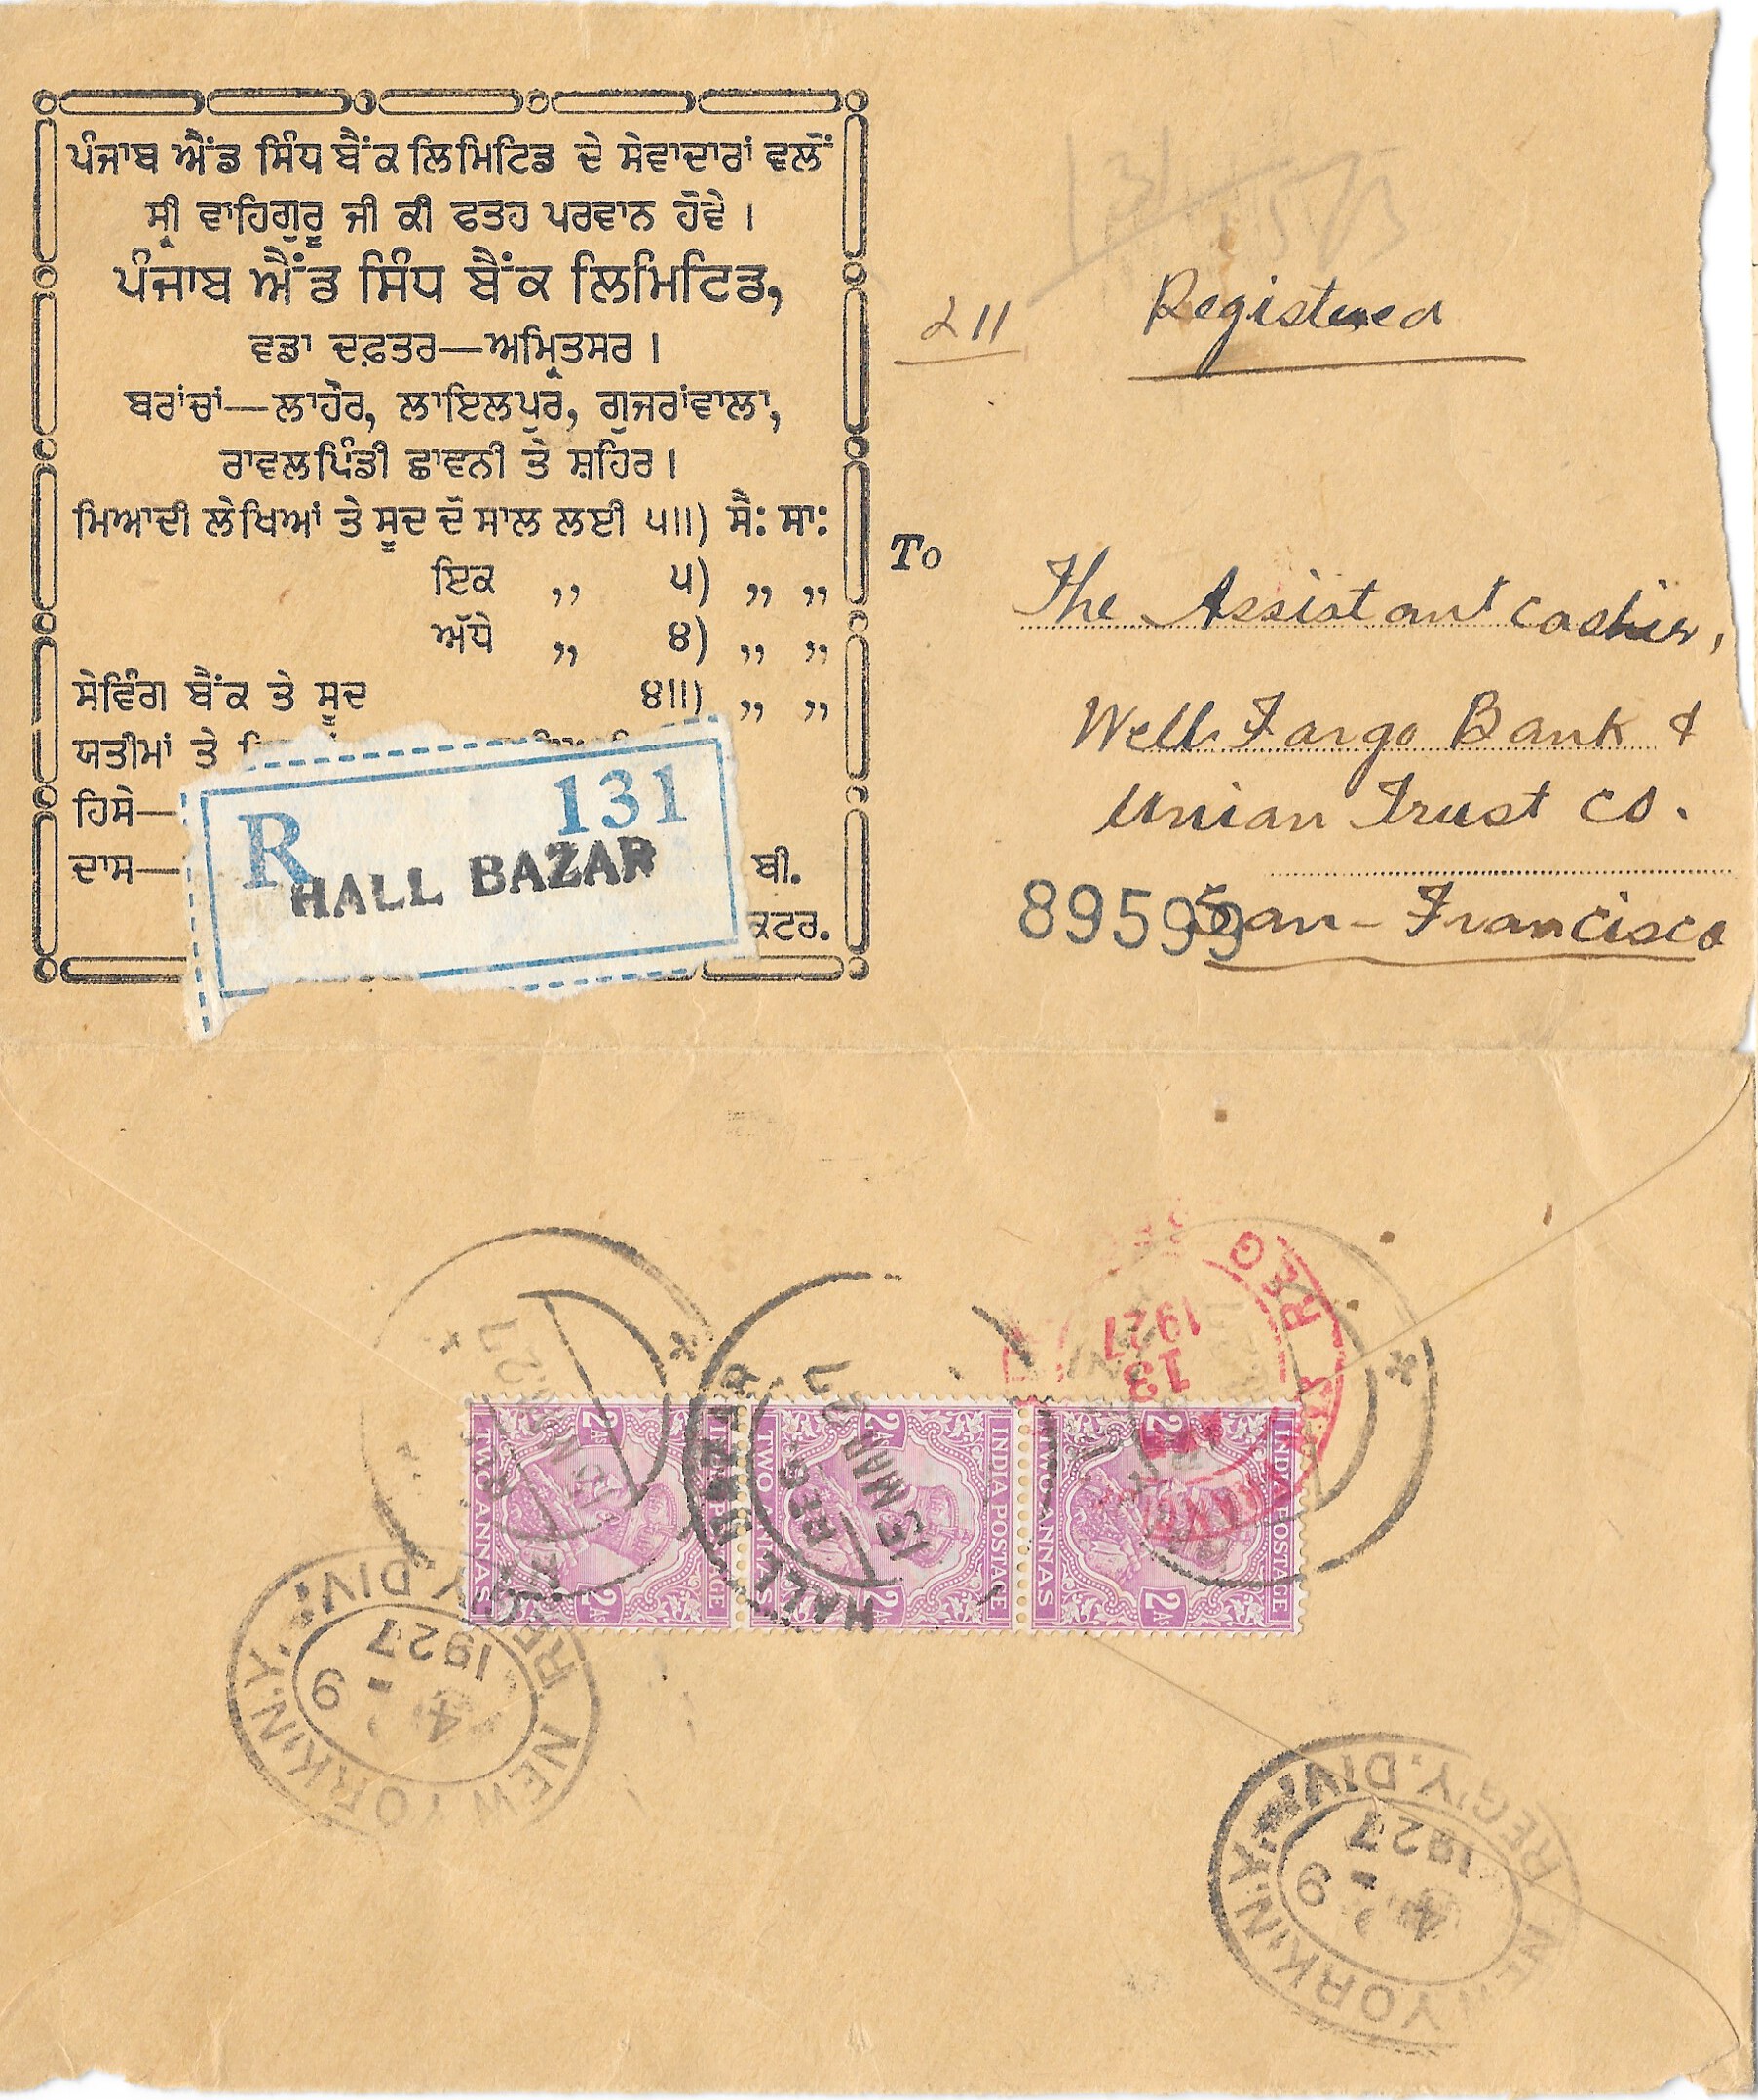 ਪੰਜਾਬ ਐਂਡ ਸਿੰਧ ਬੈਂਕ ਲਿਮਿਟਿਡ ਦੇ ਸੇਵਾਦਾਰਾਂ ਵਲੋਂ
ਸ੍ਰੀ ਵਾਹਿਗੁਰੂ ਜੀ ਕੀ ਫਤਹ ਪਰਵਾਨ ਹੋਵੇ।
ਪੰਜਾਬ ਐਂਡ ਸਿੰਧ ਬੈਂਕ ਲਿਮਿਟਿਡ,
ਵਡਾ ਦਫ਼ਤਰ—ਅਮ੍ਰਿਤਸਰ।
ਬਰਾਂਚਾਂ—ਲਾਹੌਰ, ਲਾਇਲਪੁਰ, ਗੁਜਰਾਂਵਾਲਾ,
ਰਾਵਲਪਿੰਡੀ ਛਾਵਨੀ ਤੇ ਸ਼ਹਿਰ।
ਮਿਆਦੀ ਲੇਖਿਆਂ ਤੇ ਸੂਦ ਦੋ ਸਾਲ ਲਈ ੫॥) ਸੈ: ਸਾ:
ਇਕ ,, ੫) ,, ,,
ਅੱਧੇ ,, ੪) ,, ,,
ਸੇਵਿੰਗ ਬੈਂਕ ਤੇ ਸੂਦ ੪॥) ,, ,,
ਯਤੀਮਾਂ ਤੇ
ਹਿਸੇ—
ਦਾਸ— ਬੀ.
ਕਟਰ.
R 131
HALL BAZAR
211 Registered
To
The Assistant Cashier,
Well Fargo Bank &
Union Trust Co.
San-Francisco
89599
REG
13
1927
HALL BAZAR
REG.
15 MAR. 27
INDIA POSTAGE
2As 2As
TWO ANNAS
INDIA POSTAGE
2As 2As
TWO ANNAS
INDIA POSTAGE
2As 2As
TWO ANNAS
NEW YORK, N.Y.
REG'Y. DIV.
4 - 9
1927
NEW YORK, N.Y.
REG'Y. DIV.
4 - 9
1927